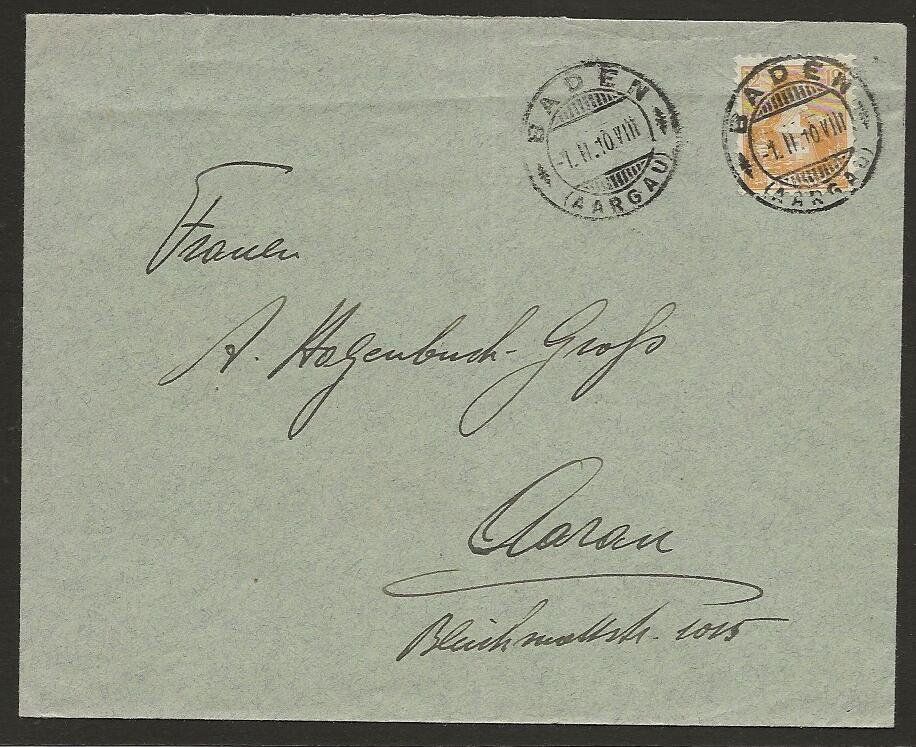 BADEN
-1.II.10 VIII
(AARGAU)
BADEN
-1.II.10 VIII
(AARGAU)
Frauen
A. Hagenbuch-Gross
Aarau
Bleichmattstr. 1015